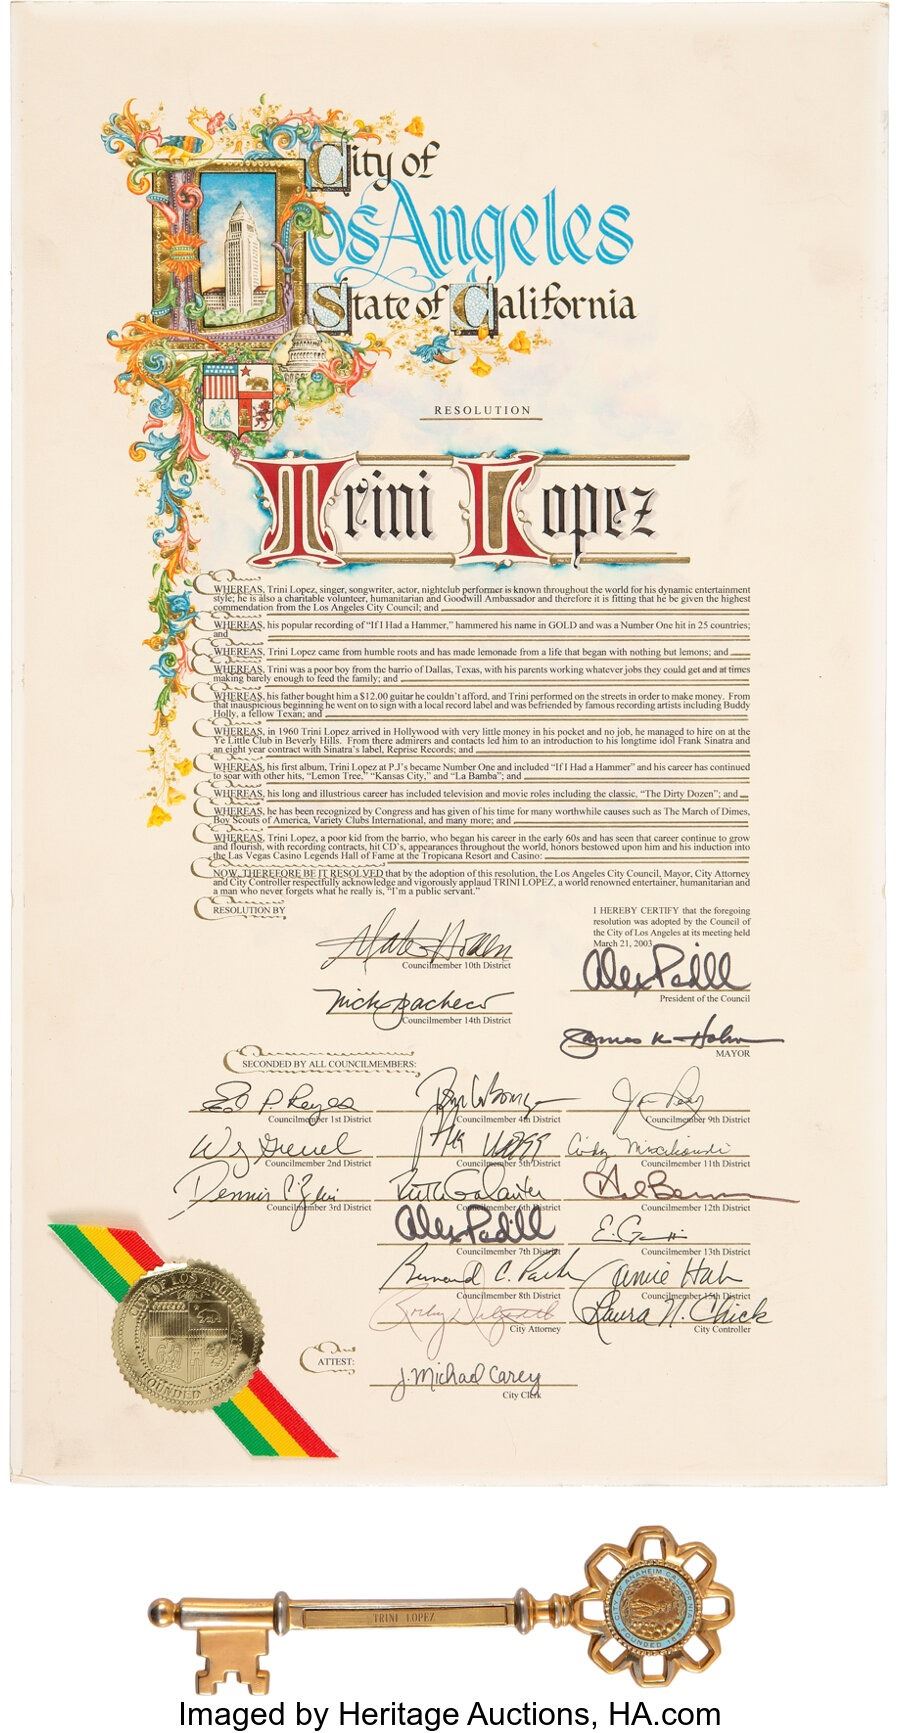 City of
Los Angeles
State of California
RESOLUTION
Trini Lopez
WHEREAS, Trini Lopez, singer, songwriter, actor, nightclub performer is known throughout the world for his dynamic entertainment
style; he is also a charitable volunteer, humanitarian and Goodwill Ambassador and therefore it is fitting that he be given the highest
commendation from the Los Angeles City Council; and
WHEREAS, his popular recording of "If I Had a Hammer," hammered his name in GOLD and was a Number One hit in 25 countries;
and
WHEREAS, Trini Lopez came from humble roots and has made lemonade from a life that began with nothing but lemons; and
WHEREAS, Trini was a poor boy from the barrio of Dallas, Texas, with his parents working whatever jobs they could get and at times
making barely enough to feed the family; and
WHEREAS, his father bought him a $12.00 guitar he couldn't afford, and Trini performed on the streets in order to make money. From
that inauspicious beginning he went on to sign with a local record label and was befriended by famous recording artists including Buddy
Holly, a fellow Texan; and
WHEREAS, in 1960 Trini Lopez arrived in Hollywood with very little money in his pocket and no job, he managed to hire on at the
Ye Little Club in Beverly Hills. From there admirers and contacts led him to an introduction to his longtime idol Frank Sinatra and
an eight year contract with Sinatra's label, Reprise Records; and
WHEREAS, his first album, Trini Lopez at P.J's became Number One and included "If I Had a Hammer" and his career has continued
to soar with other hits, "Lemon Tree," "Kansas City," and "La Bamba"; and
WHEREAS, his long and illustrious career has included television and movie roles including the classic, "The Dirty Dozen"; and
WHEREAS, he has been recognized by Congress and has given of his time for many worthwhile causes such as The March of Dimes,
Boy Scouts of America, Variety Clubs International, and many more; and
WHEREAS, Trini Lopez, a poor kid from the barrio, who began his career in the early 60s and has seen that career continue to grow
and flourish, with recording contracts, hit CD's, appearances throughout the world, honors bestowed upon him and his induction into
the Las Vegas Casino Legends Hall of Fame at the Tropicana Resort and Casino:
NOW, THEREFORE BE IT RESOLVED that by the adoption of this resolution, the Los Angeles City Council, Mayor, City Attorney
and City Controller respectfully acknowledge and vigorously applaud TRINI LOPEZ, a world renowned entertainer, humanitarian and
a man who never forgets what he really is, "I'm a public servant."
RESOLUTION BY
I HEREBY CERTIFY that the foregoing
resolution was adopted by the Council of
the City of Los Angeles at its meeting held
March 21, 2003
Nate Holden
Councilmember 10th District
Alex Padilla
President of the Council
Nick Pacheco
Councilmember 14th District
James K. Hahn
MAYOR
SECONDED BY ALL COUNCILMEMBERS:
Ed P. Reyes
Councilmember 1st District
Councilmember 4th District
Councilmember 9th District
Councilmember 2nd District
Councilmember 5th District
Cindy Miscikowski
Councilmember 11th District
Dennis P. Zine
Councilmember 3rd District
Ruth Galanter
Councilmember 6th District
Councilmember 12th District
Alex Padilla
Councilmember 7th District
Councilmember 13th District
Bernard C. Parks
Councilmember 8th District
Janice Hahn
Councilmember 15th District
City Attorney
Laura N. Chick
City Controller
ATTEST:
J. Michael Carey
City Clerk
CITY OF LOS ANGELES
FOUNDED 1781
TRINI LOPEZ
CITY OF ANAHEIM CALIFORNIA
FOUNDED
Imaged by Heritage Auctions, HA.com